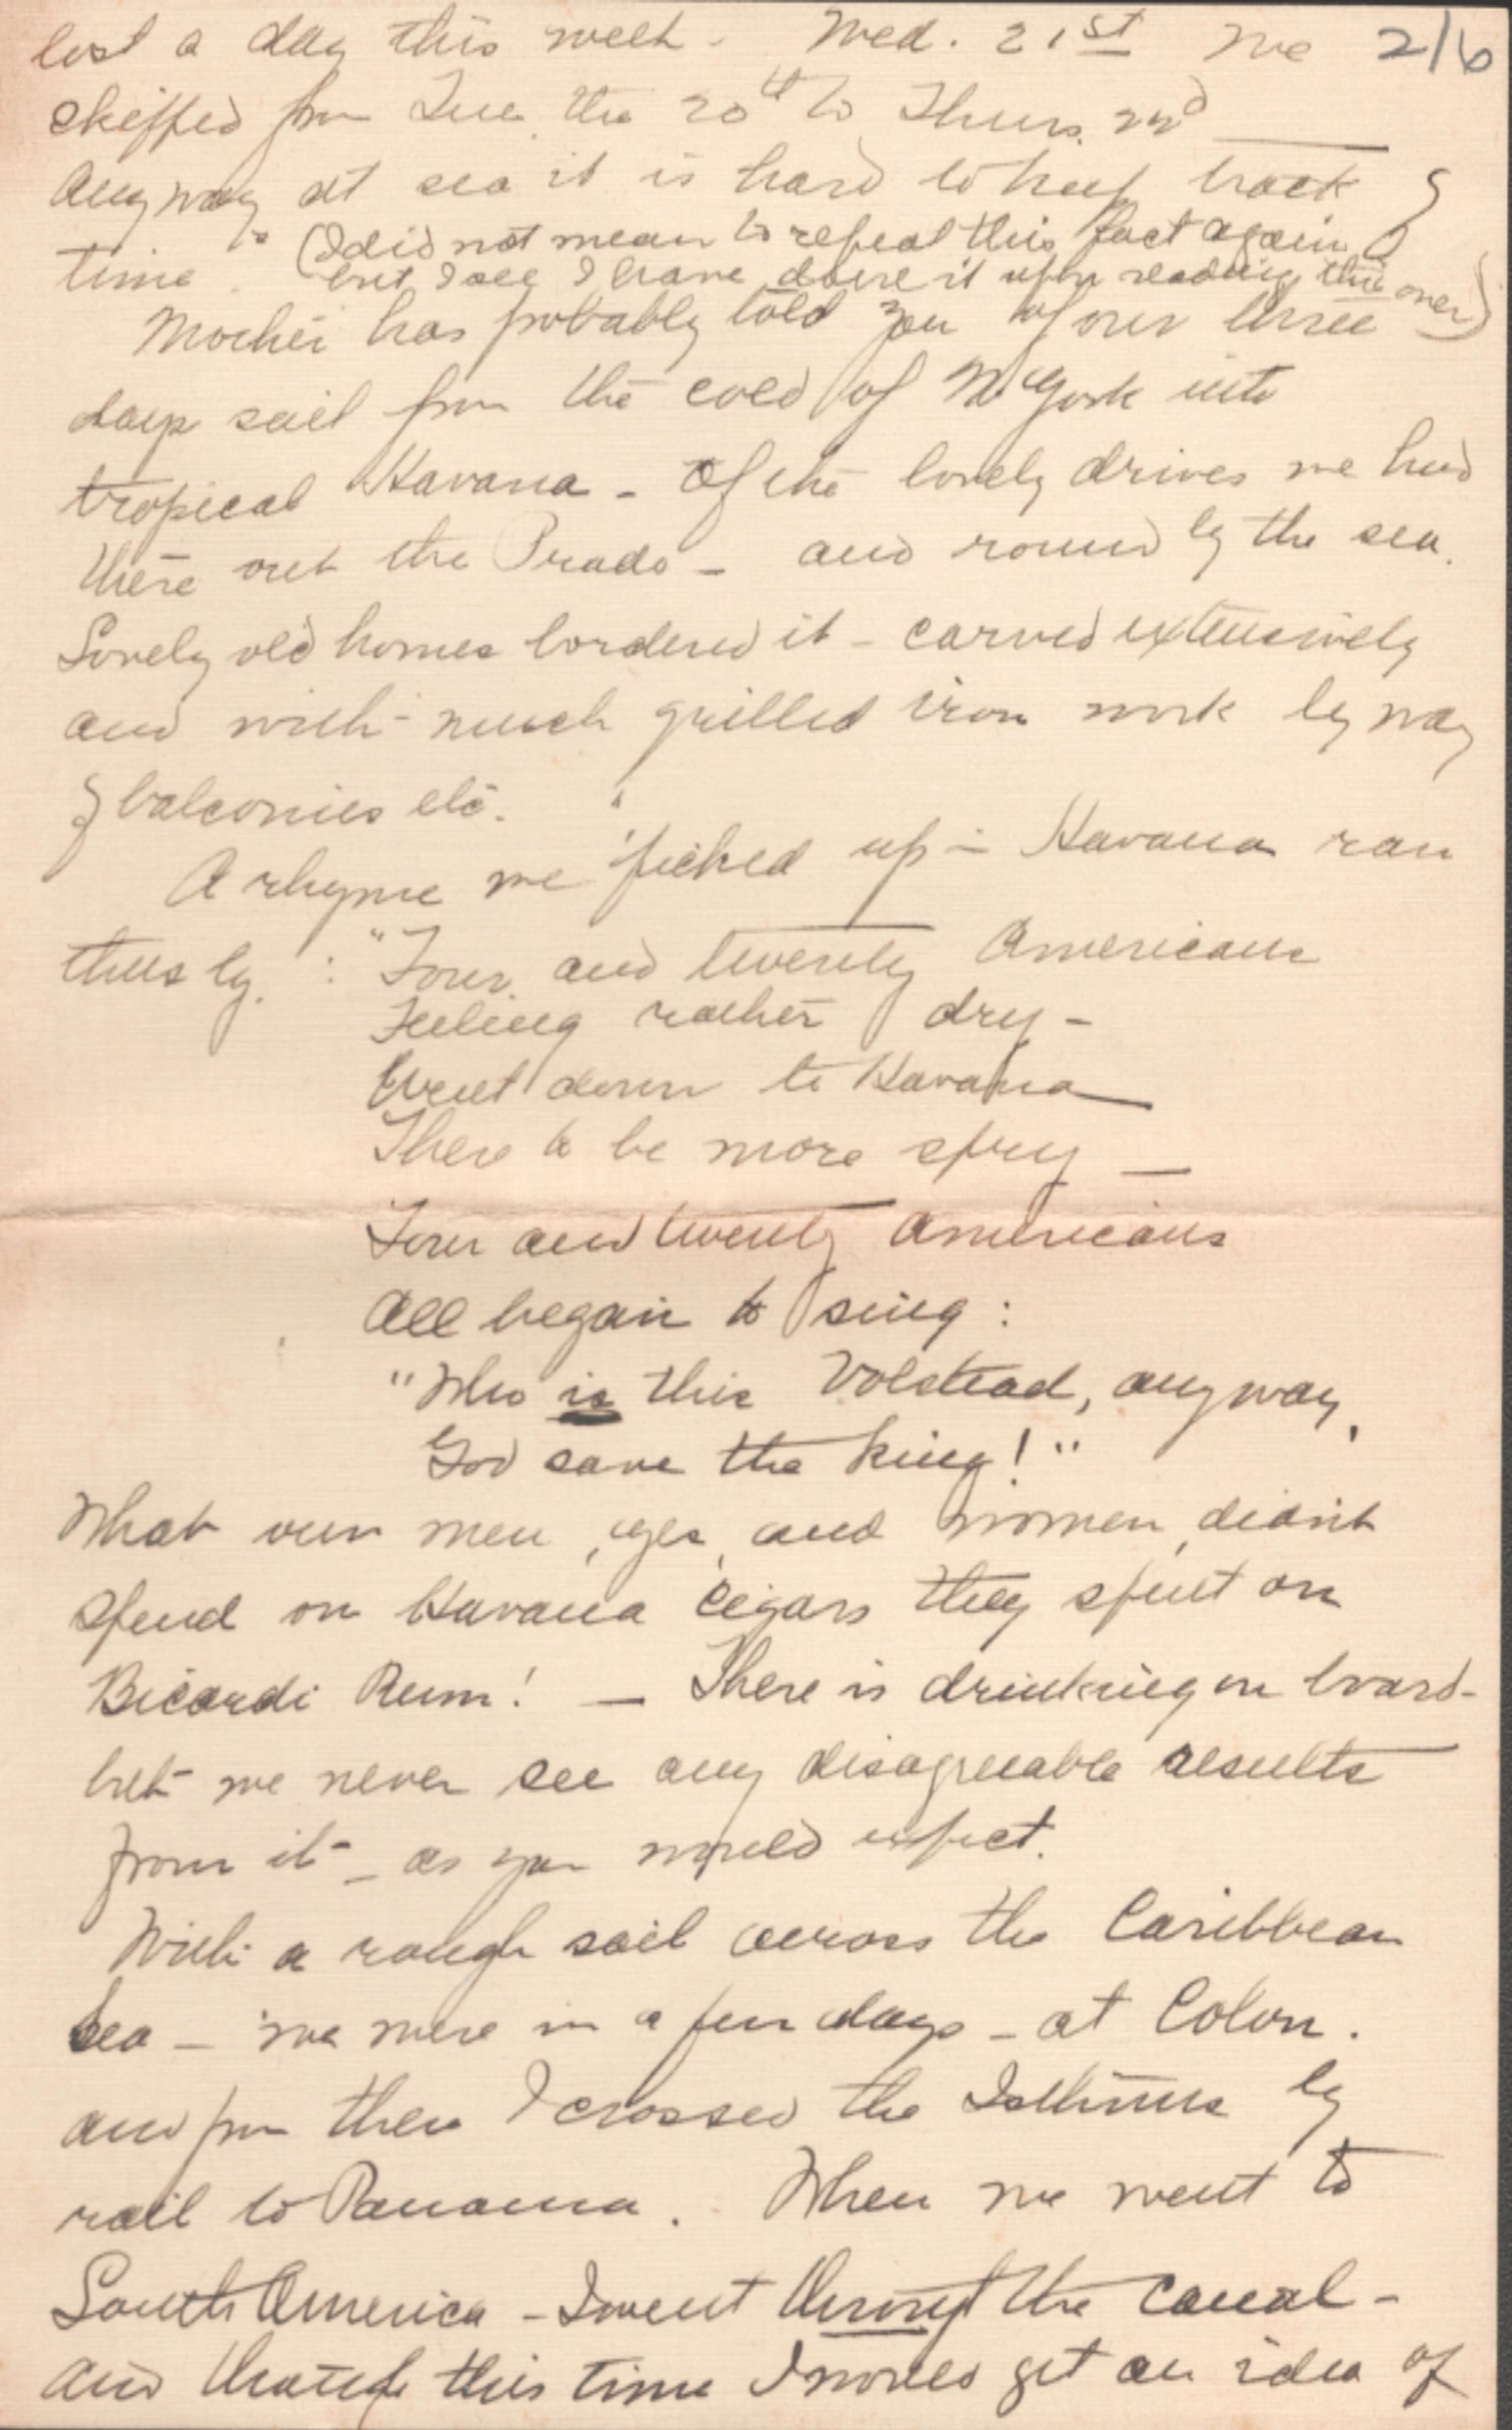 lost a day this week - Wed. 21st We 2/6
skipped from Tue. the 20th to Thurs. 22d
Anyway at sea it is hard to keep track of
time. (I did not mean to repeat this fact again
but I see I have done it upon reading this over)
Mother has probably told you of our three
days sail from the cold of N. York into
tropical Havana - Of the lovely drives we had
there out the Prado - and round by the sea.
Lovely old homes bordered it - carved extensively
and with much grilled iron work by way
of balconies etc.
A rhyme we picked up in Havana ran
thusly: "Four and twenty Americans
Feeling rather dry -
Went down to Havana
There to be more spry —
Four and twenty Americans
All began to sing:
"Who is this Volstead, anyway,
God save the king!"
What our men, yes, and women, didn't
spend on Havana cigars they spent on
Bicardi Rum! — There is drinking on board -
but we never see any disagreeable results
from it - as you would expect.
With a rough sail across the Caribbean
Sea - we were in a few days - at Colon.
and from there I crossed the Isthmus by
rail to Panama. When we went to
South America - I went through the canal -
and thought this time I would get an idea of